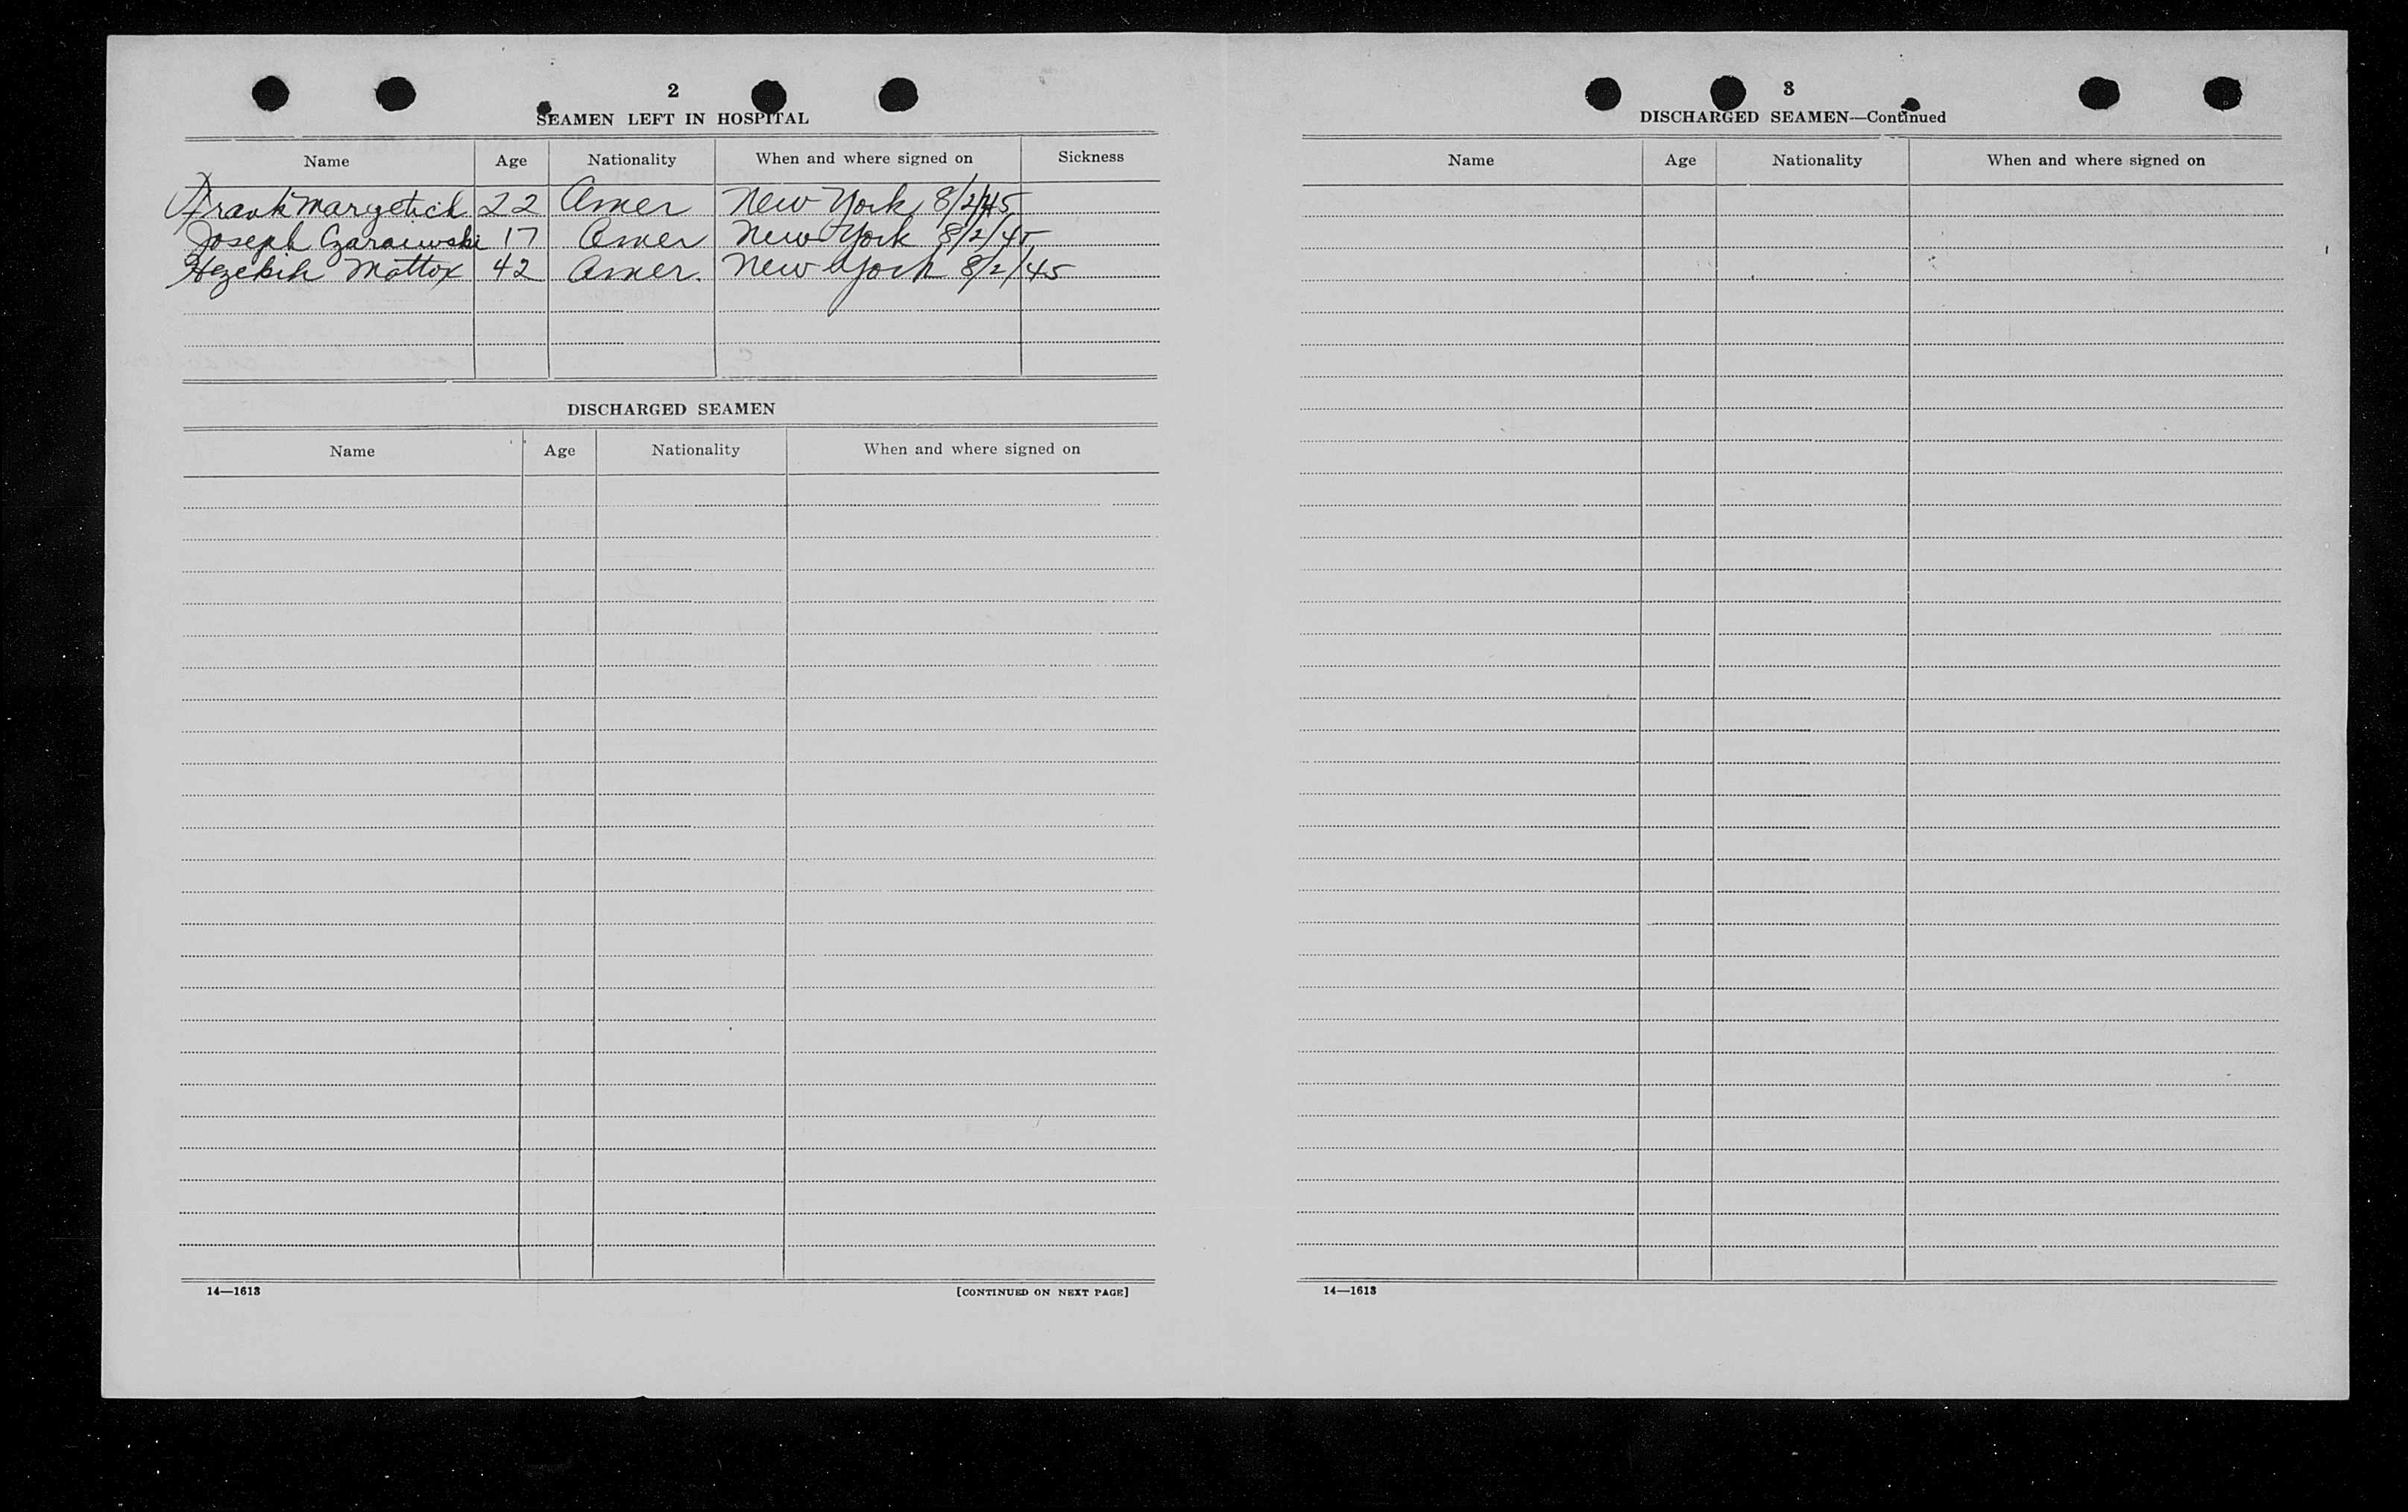 2
SEAMEN LEFT IN HOSPITAL
Name Age Nationality When and where signed on Sickness
Frank Margetich 22 Amer New York 8/2/45
Joseph Czaraiwski 17 Amer New York 8/2/45
Hezekih Mattox 42 Amer. New York 8/2/45
DISCHARGED SEAMEN
Name Age Nationality When and where signed on
14—1613 [CONTINUED ON NEXT PAGE]
3
DISCHARGED SEAMEN—Continued
Name Age Nationality When and where signed on
14—1613